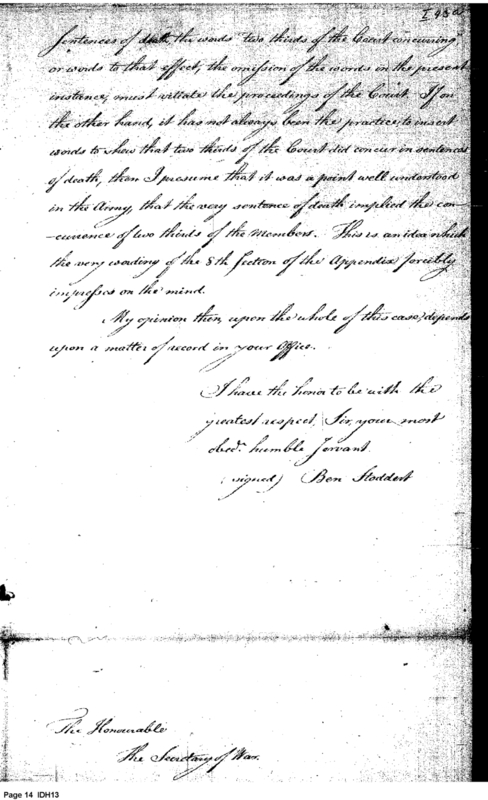 I 95a
Sentences of death the words "two thirds of the Court concurring"
or words to that effect, the omission of the words in the present
instance, must vitiate the proceedings of the Court. If on
the other hand, it has not always been the practice, to insert
words to shew that two thirds of the Court did concur in sentences
of death, then I presume that it was a point well understood
in the Army, that the very sentence of death implied the con-
-currence of two thirds of the Members. This is an idea which
the very wording of the 8th Section of the Appendix forcibly
impresses on the mind.
My opinion then, upon the whole of this case, depends
upon a matter of record in your Office.
I have the honor to be with the
greatest respect, Sir, your most
obedt. humble Servant.
(signed) Ben Stoddert
The Honourable
The Secretary of War.
Page 14 IDH13